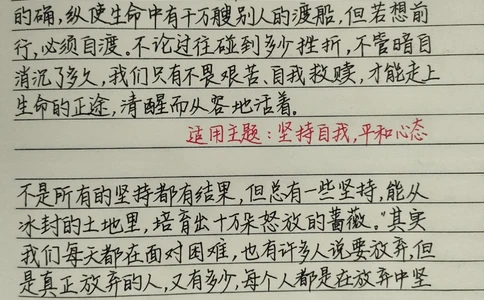 的确,纵使生命中有千万艘别人的渡船,但若想前
行,必须自渡。不论过往碰到多少挫折,不管暗自
消沉了多久,我们只有不畏艰苦、自我救赎,才能走上
生命的正途,清醒而从容地活着。
适用主题:坚持自我,平和心态
不是所有的坚持都有结果,但总有一些坚持,能从
冰封的土地里,培育出十万朵怒放的蔷薇。"其实
我们每天都在面对困难,也有许多人说要放弃,但
是真正放弃的人,又有多少,每个人都是在放弃中坚